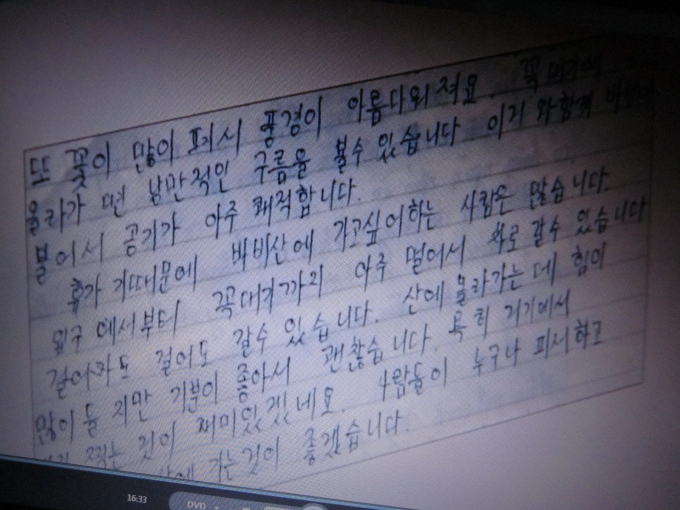 또 꽃이 많이 피서 풍경이 아름다워져요. 꼭
올라가 면 낭만적인 구름을 볼수 있습니다. 이거 와함께
불어서 공기가 아주 쾌적합니다.
휴가 기때문에 바비산에 가고싶어하는 사람은 많습니다.
입구 에서부터 꼭대기까지 아주 멀어서 차로 갈수 있습니다
걸어가도 갈수 있습니다. 산에 올라가는 데 힘이
많이 들 지만 기분이 좋아서 괜찮습니다. 특히 거기에서
찍는 것이 재미있겠네요. 사람들이 누구나 피서하고
가는것이 좋겠습니다.
16:33
DVD